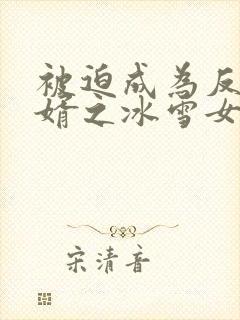 被迫成为反
婿之冰雪女
宋清音